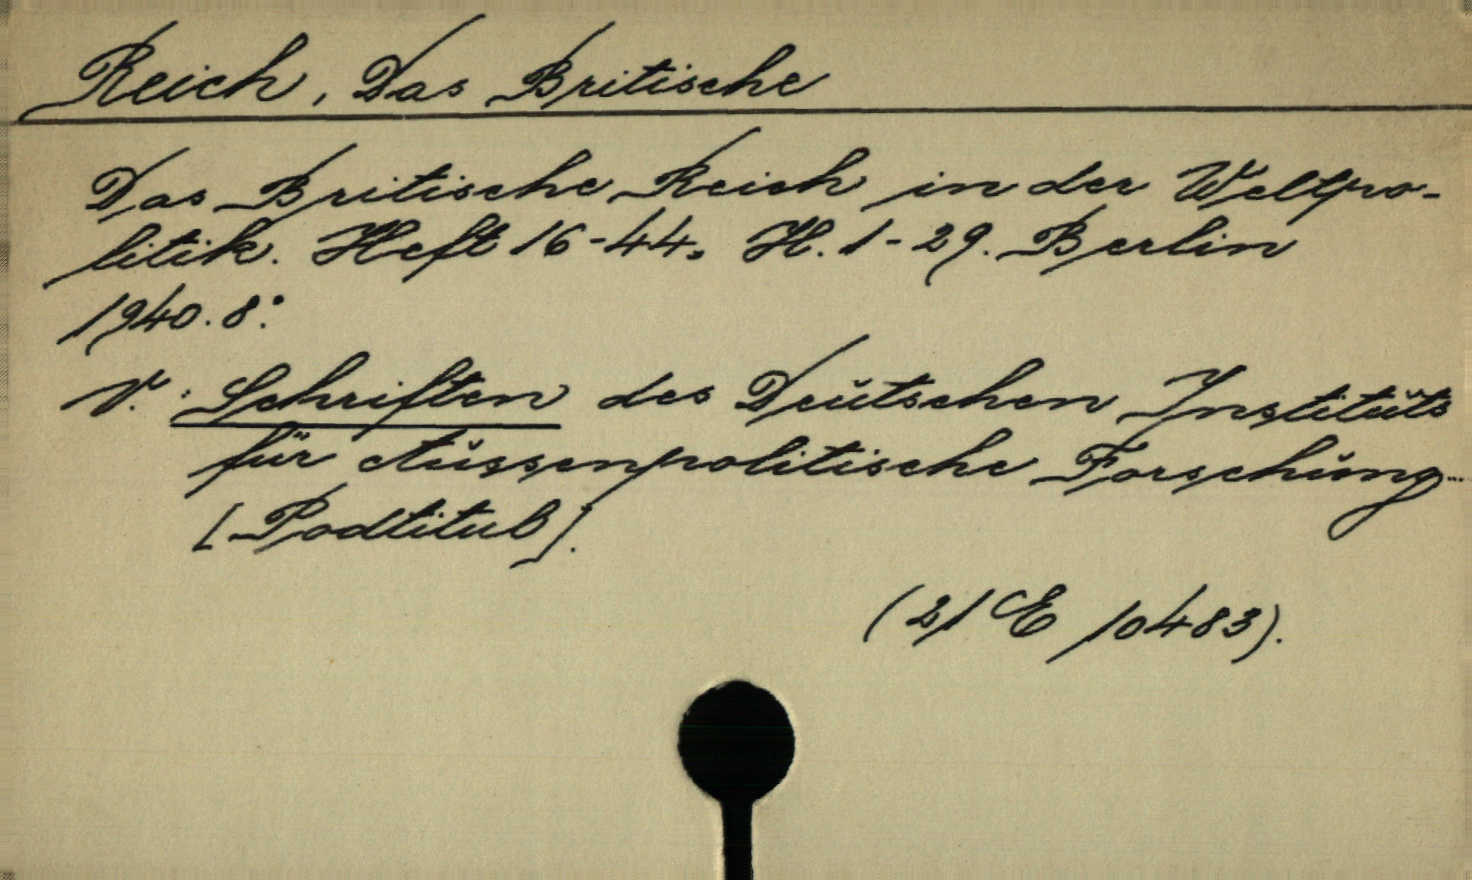 Reich, Das Britische
Das Britische Reich in der Weltpo-
litik. Heft 16-44, H. 1-29. Berlin
1940. 8°.
V. Schriften des Deŭtschen Institŭts
für Aŭssenpolitische Forschŭng...
[Podtitul].
(21 E 10483).